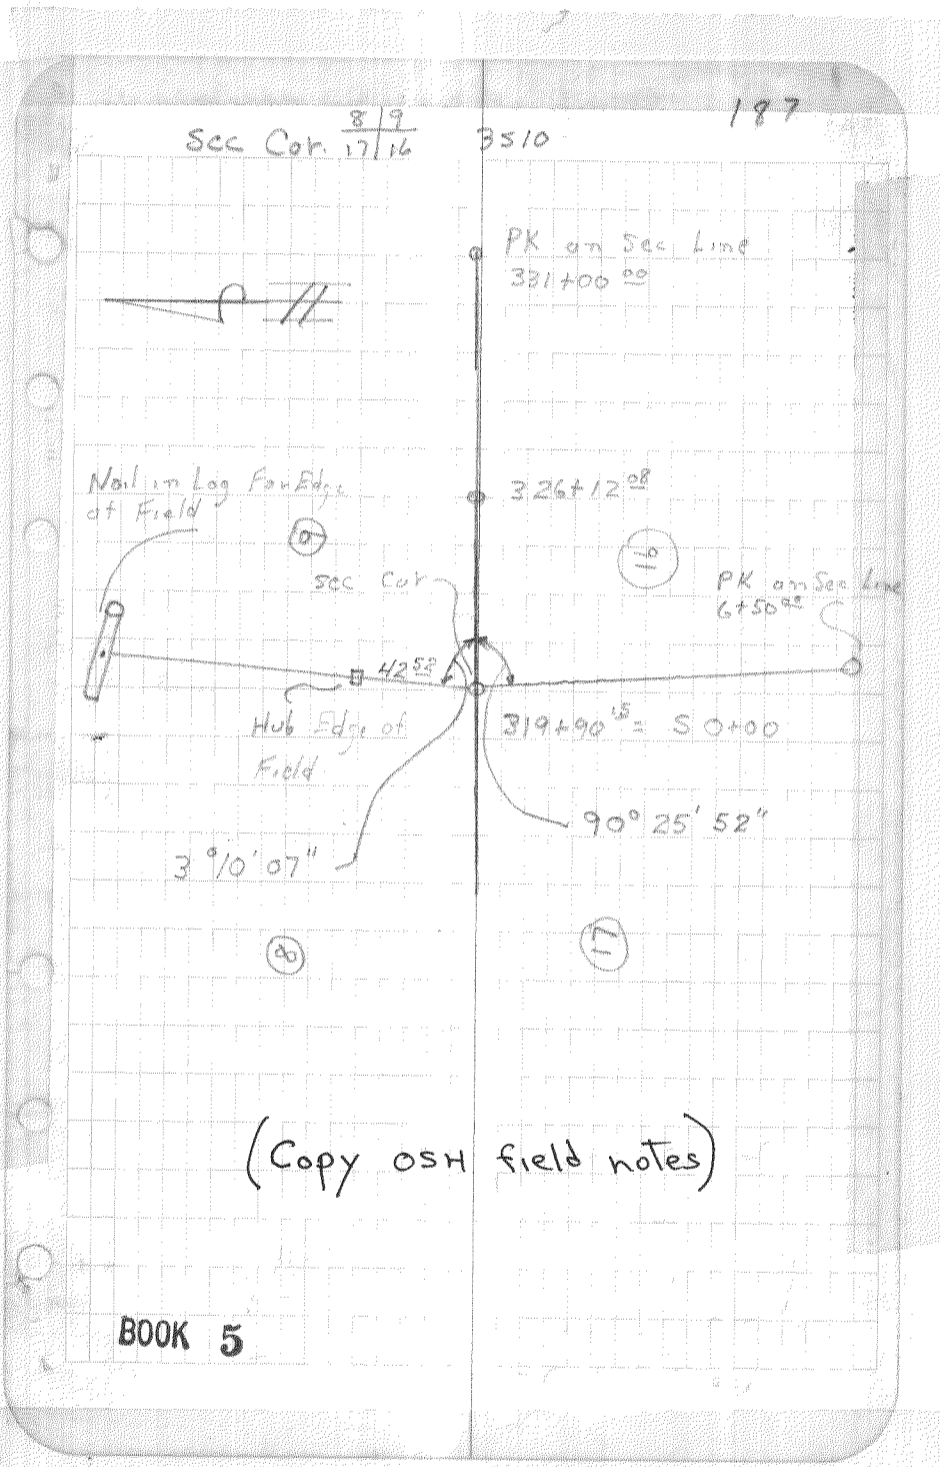 187
Sec Cor. 8|9 17|16 3510
PK on Sec Line
331+00 00
Nail in Log Far Edge
of Field
326+12 08
9
16
Sec Cor
PK on Sec Line
6+50 00
42 52
Hub Edge of
Field
319+90 15 = S 0+00
90° 25' 52"
3°10' 07"
8
17
(Copy OSH field notes)
BOOK 5